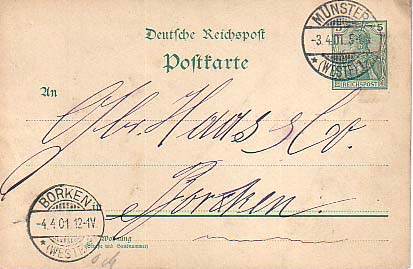 Deutsche Reichspost
Postkarte
MÜNSTER
-3.4.01. 5-
*(WESTF.)
5 5
REICHSPOST
An
Gbr. Haas & Co.
Borken.
BORKEN
-4.4.01.12-1V.
*(WESTF.)
Wohnung
(Straße und Hausnummer)